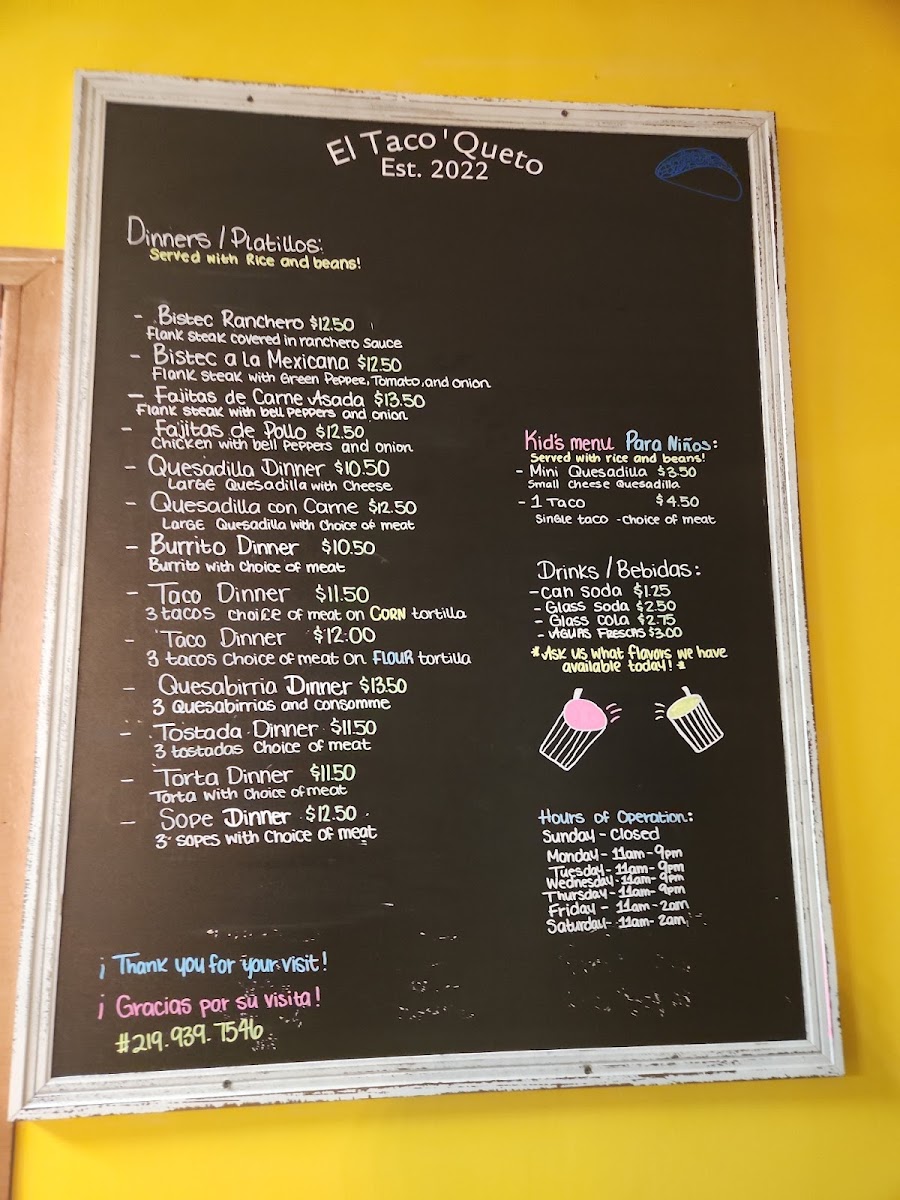 El Taco'Queto
Est. 2022
Dinners / Platillos:
Served with Rice and beans!
- Bistec Ranchero $12.50
Flank steak covered in ranchero sauce
- Bistec a la Mexicana $12.50
Flank steak with Green Pepper, Tomato, and onion
- Fajitas de Carne Asada $13.50
Flank steak with bell peppers and onion
- Fajitas de Pollo $12.50
Chicken with bell peppers and onion
- Quesadilla Dinner $10.50
Large Quesadilla with Cheese
- Quesadilla con Carne $12.50
Large Quesadilla with choice of meat
- Burrito Dinner $10.50
Burrito with choice of meat
- Taco Dinner $11.50
3 tacos choice of meat on CORN tortilla
- Taco Dinner $12.00
3 tacos choice of meat on FLOUR tortilla
- Quesabirria Dinner $13.50
3 Quesabirrias and consomme
- Tostada Dinner $11.50
3 tostadas choice of meat
- Torta Dinner $11.50
Torta with choice of meat
- Sope Dinner $12.50
3 sopes with choice of meat
Kid's menu Para Niños:
Served with rice and beans!
- Mini Quesadilla $3.50
Small Cheese Quesadilla
- 1 Taco $4.50
Single taco - choice of meat
Drinks / Bebidas:
- Can soda $1.25
- Glass soda $2.50
- Glass cola $2.75
- Aguas Frescas $3.00
*Ask us what flavors we have
available today!*
Hours of Operation:
Sunday - Closed
Monday - 11am - 9pm
Tuesday - 11am - 9pm
Wednesday - 11am - 9pm
Thursday - 11am - 9pm
Friday - 11am - 2am
Saturday - 11am - 2am
¡Thank you for your visit!
¡Gracias por su visita!
#219.939.7546